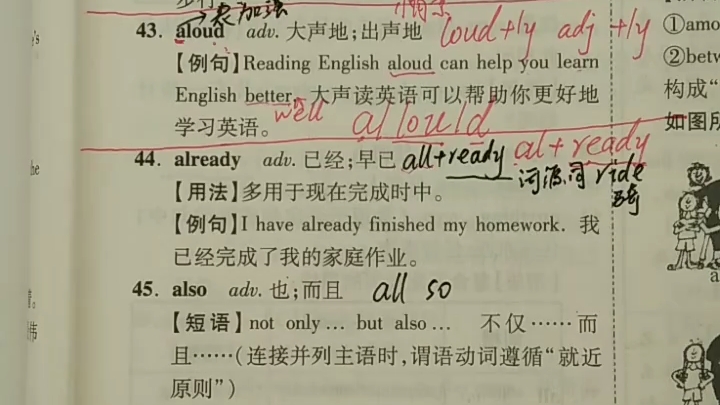 表加强
43. aloud adv. 大声地;出声地 loud+ly adj +ly
【例句】Reading English aloud can help you learn
English better. 大声读英语可以帮助你更好地
学习英语。 well al lould
44. already adv. 已经;早已 all+ready al+ready
词源同 ride
骑
【用法】多用于现在完成时中。
【例句】I have already finished my homework. 我
已经完成了我的家庭作业。
45. also adv. 也;而且 all so
【短语】not only… but also… 不仅……而
且……(连接并列主语时,谓语动词遵循“就近
原则”)
①amo
②betw
构成“
如图成